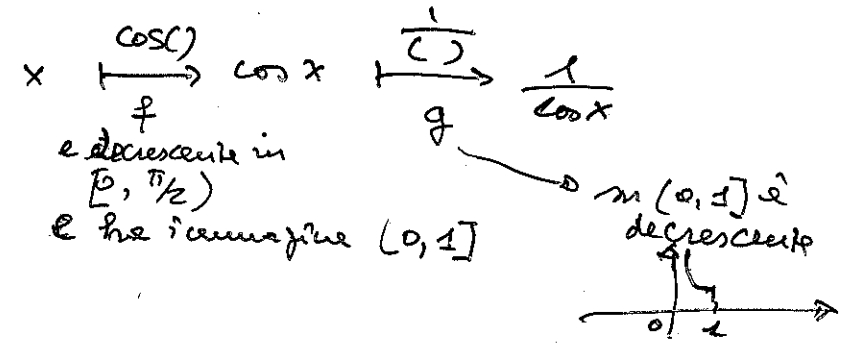 x cos() cos x 1/( ) 1/cos x
f g
e decrescente in
[0, π/2)
e ha immagine (0, 1]
in (0, 1] è
decrescente
0 1